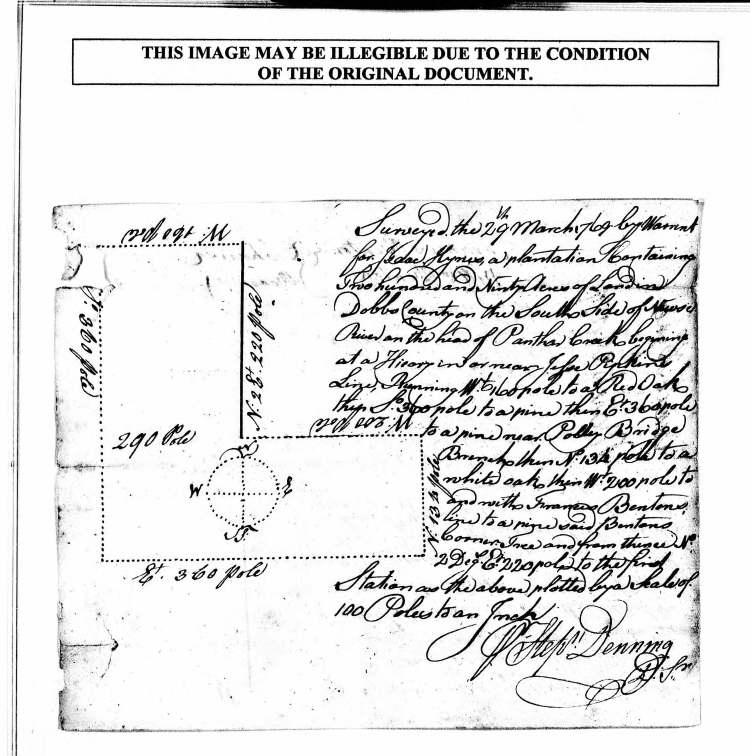 THIS IMAGE MAY BE ILLEGIBLE DUE TO THE CONDITION
OF THE ORIGINAL DOCUMENT.
Surveyed the 29th March 1769 by Warrant
for Isaac Hynes, a plantation Containing
Two hundred and Ninty Acres of Land in
Dobbs County on the South Side of Neuse
River on the head of Panther Creek begining
at a Hicory in or near Jesse Pipkins
Line, Running Wt. 160 pole to a Red Oak
then So. 360 pole to a pine then Et. 360 pole
to a pine near Polley Bridge
Branch, then No. 134 pole to a
white oak, then Wt. 200 pole to
and with Frances Bentons,
line to a pine said Bentons
Corner Tree and from thence No.
2 Deg. Et. 220 pole to the first
Station as the above plotted by a Scale of
100 Poles to an Inch
Stepn. Denning
D. Sr.
W. 160 po.
So. 360 Pole
N. 2 Et. 220 Pole
290 Pole
W. 200 po.
N. 134 Pole
W
E
Et. 360 Pole